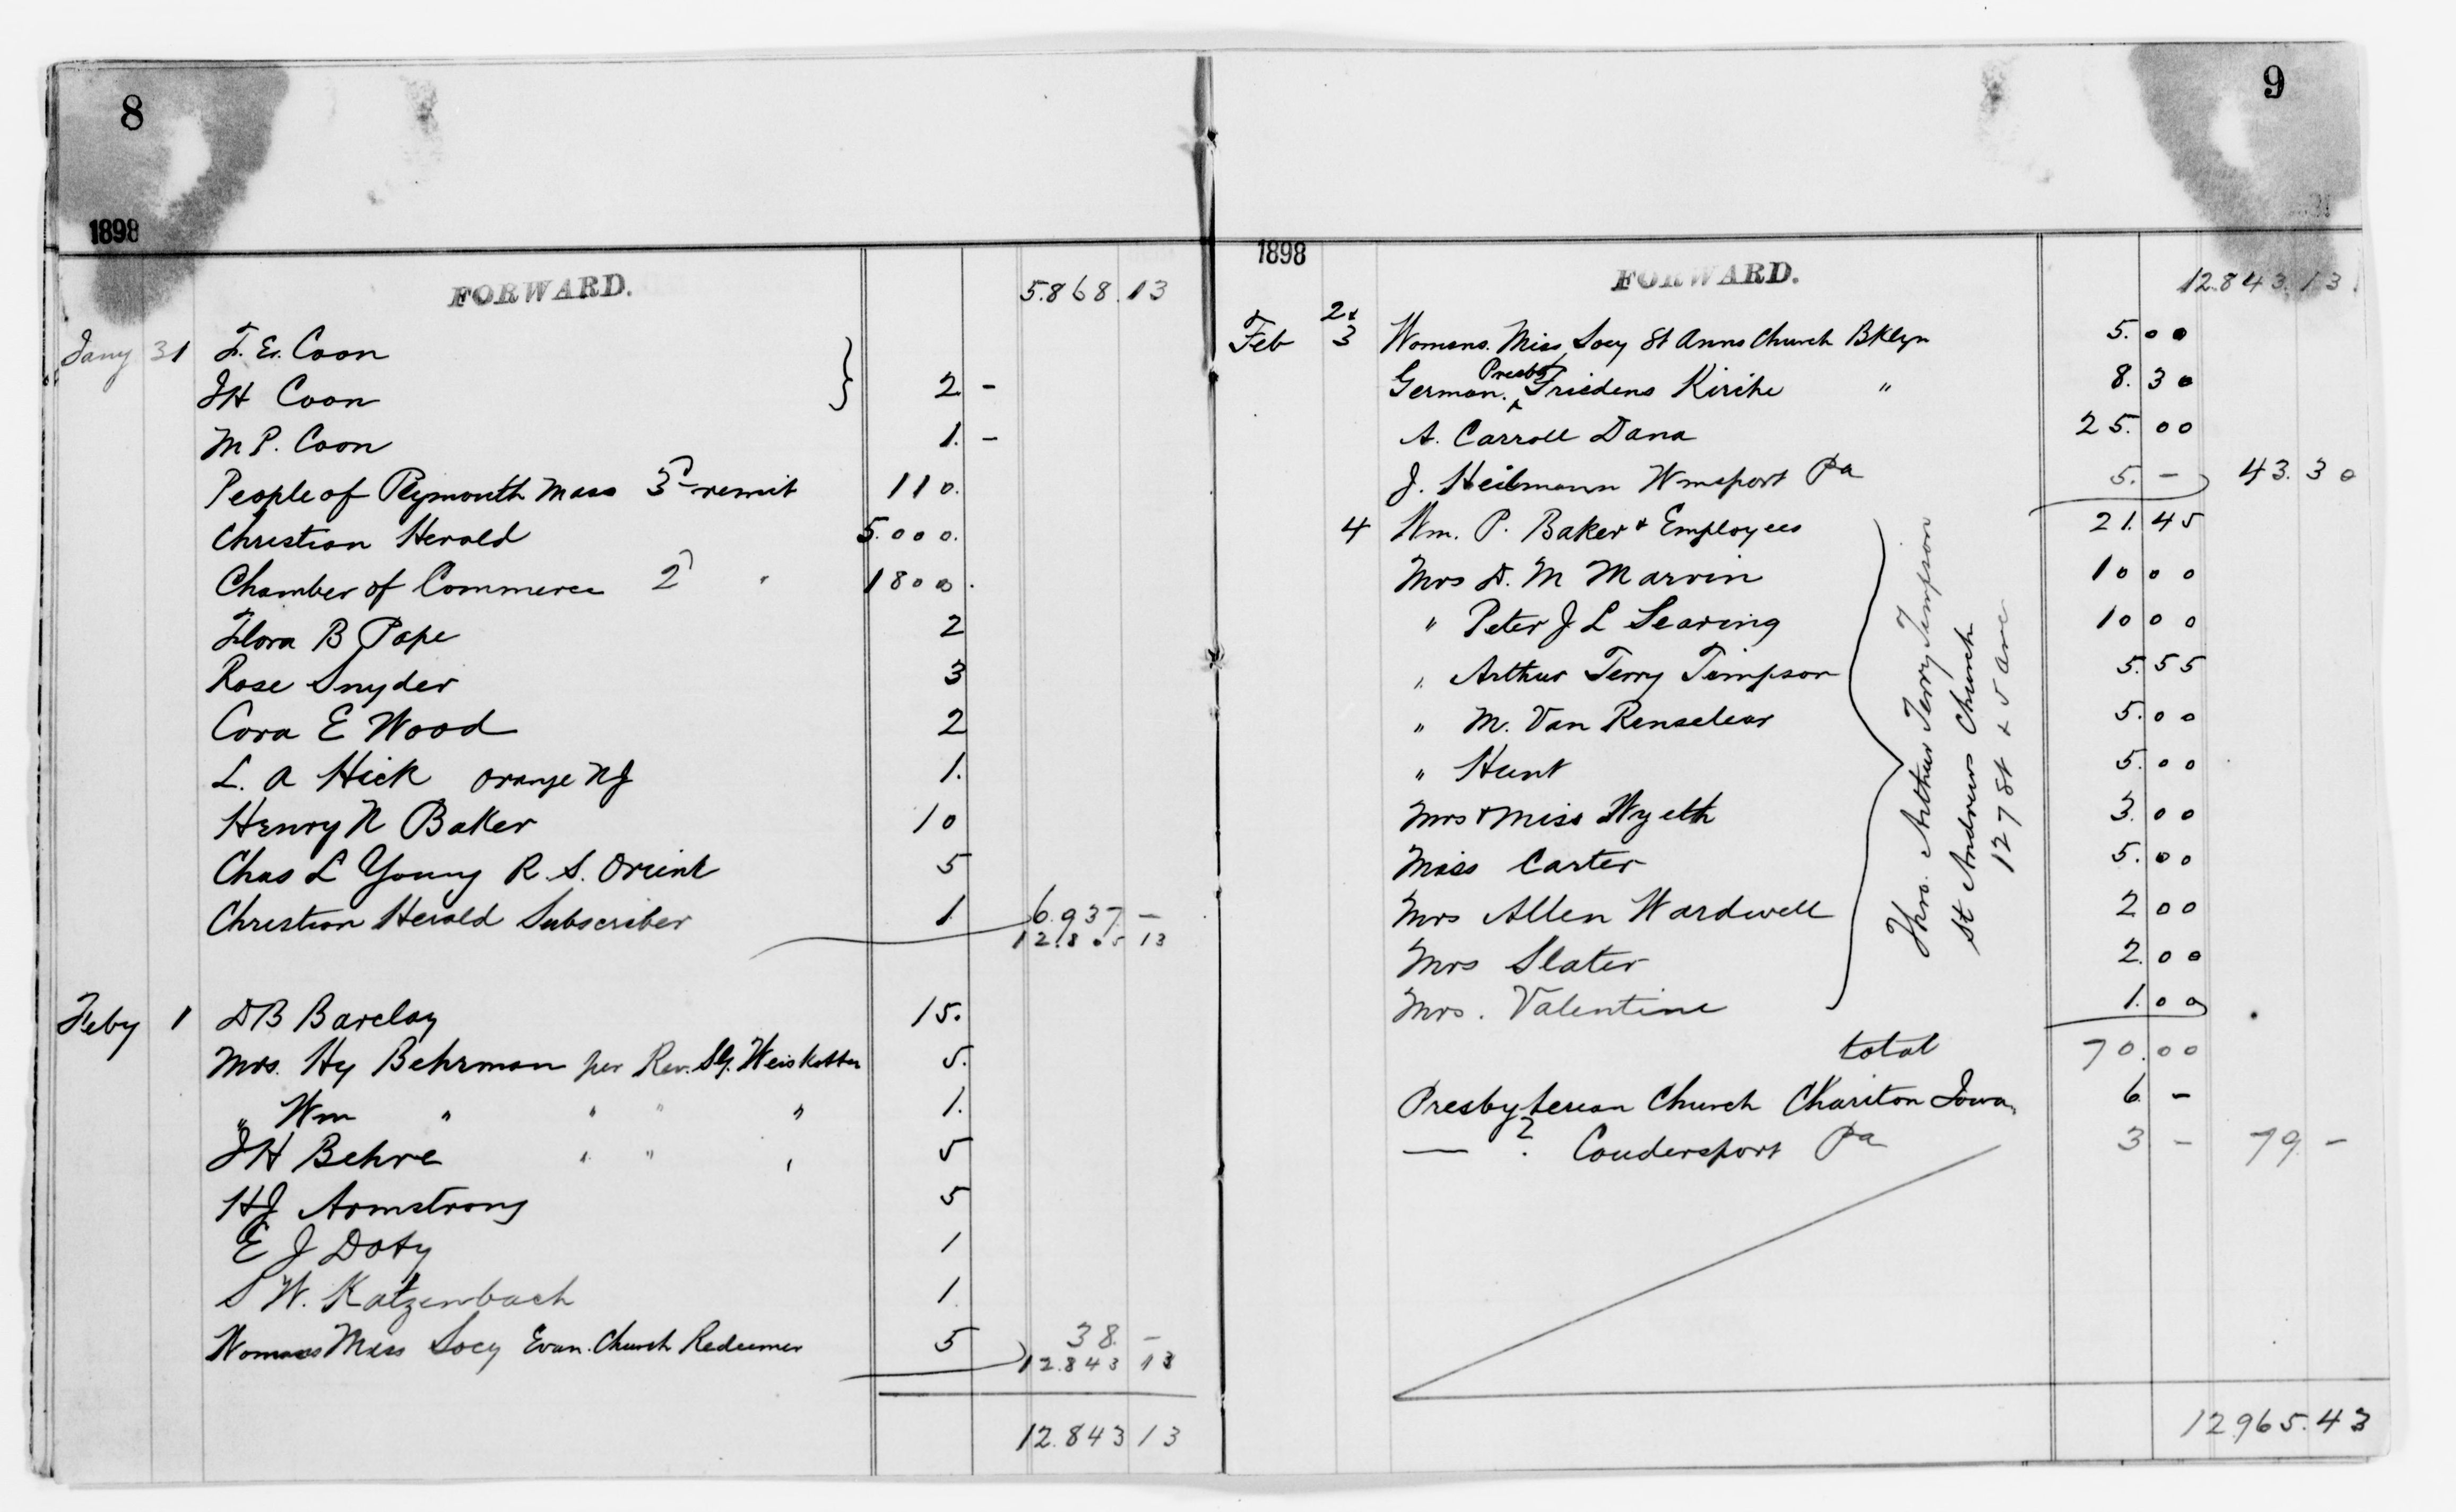 8
1898
FORWARD. 5.868.13
Jany 31 F. E. Coon
J H Coon } 2 -
M P. Coon 1. -
People of Plymouth Mass 3d remit 110.
Christian Herald 5.000.
Chamber of Commerce 2d " 1800.
Flora B Pape 2
Rose Snyder 3
Cora E Wood 2
L. A Hick Orange NJ 1.
Henry N Baker 10
Chas L Young R. S. Orient 5
Christian Herald Subscriber 1 6.937 -
12.805 13
Feby 1 D B Barclay 15.
Mrs. Hy Behrman per Rev. S G. Weiskotten 5.
" Wm " " " " 1.
J H Behre " " " 5
H J Armstrong 5
E J Doty 1
S W. Katzenbach 1.
Womans Miss Socy Evan. Church Redeemer 5 38. -
12.843 13
12.843 13
9
1898
FORWARD. 12.843.13
Feb 2 & 3 Womans. Miss Socy St Anns Church Bklyn 5.00
German. Presby Friedens Kirche " 8.30
A. Carroll Dana 25.00
J. Heilmann Wmsport Pa 5. - 43.30
4 Wm. P. Baker & Employees 21.45
Mrs D. M Marvin 10 00
" Peter J L Searing 10 00
" Arthur Terry Timpson 5.55
" M. Van Renselear 5.00
" Hunt 5.00
Mrs & Miss Wyeth 3.00
Miss Carter 5.00
Mrs Allen Wardwell 2 00
Mrs Slater 2.00
Mrs. Valentine 1.00
Thro. Arthur Terry Timpson
St Andrews Church
127 St & 5 Ave
total 70.00
Presbyterian Church Chariton Iowa. 6 -
— ? Coudersport Pa 3 - 79. -
12.965.43